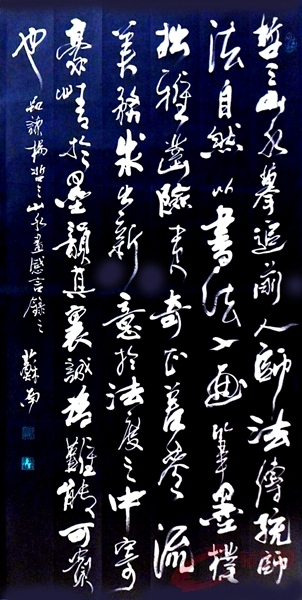 哲之山水摹追前人師法傳統師
法自然以書法入畫筆墨樸
拙雅險夷奇正流
美務求出新意於法度之中寄
豪情於墨韻真裏誠為難能可貴
也 讀楊哲之山水畫感言錄之 蘇南